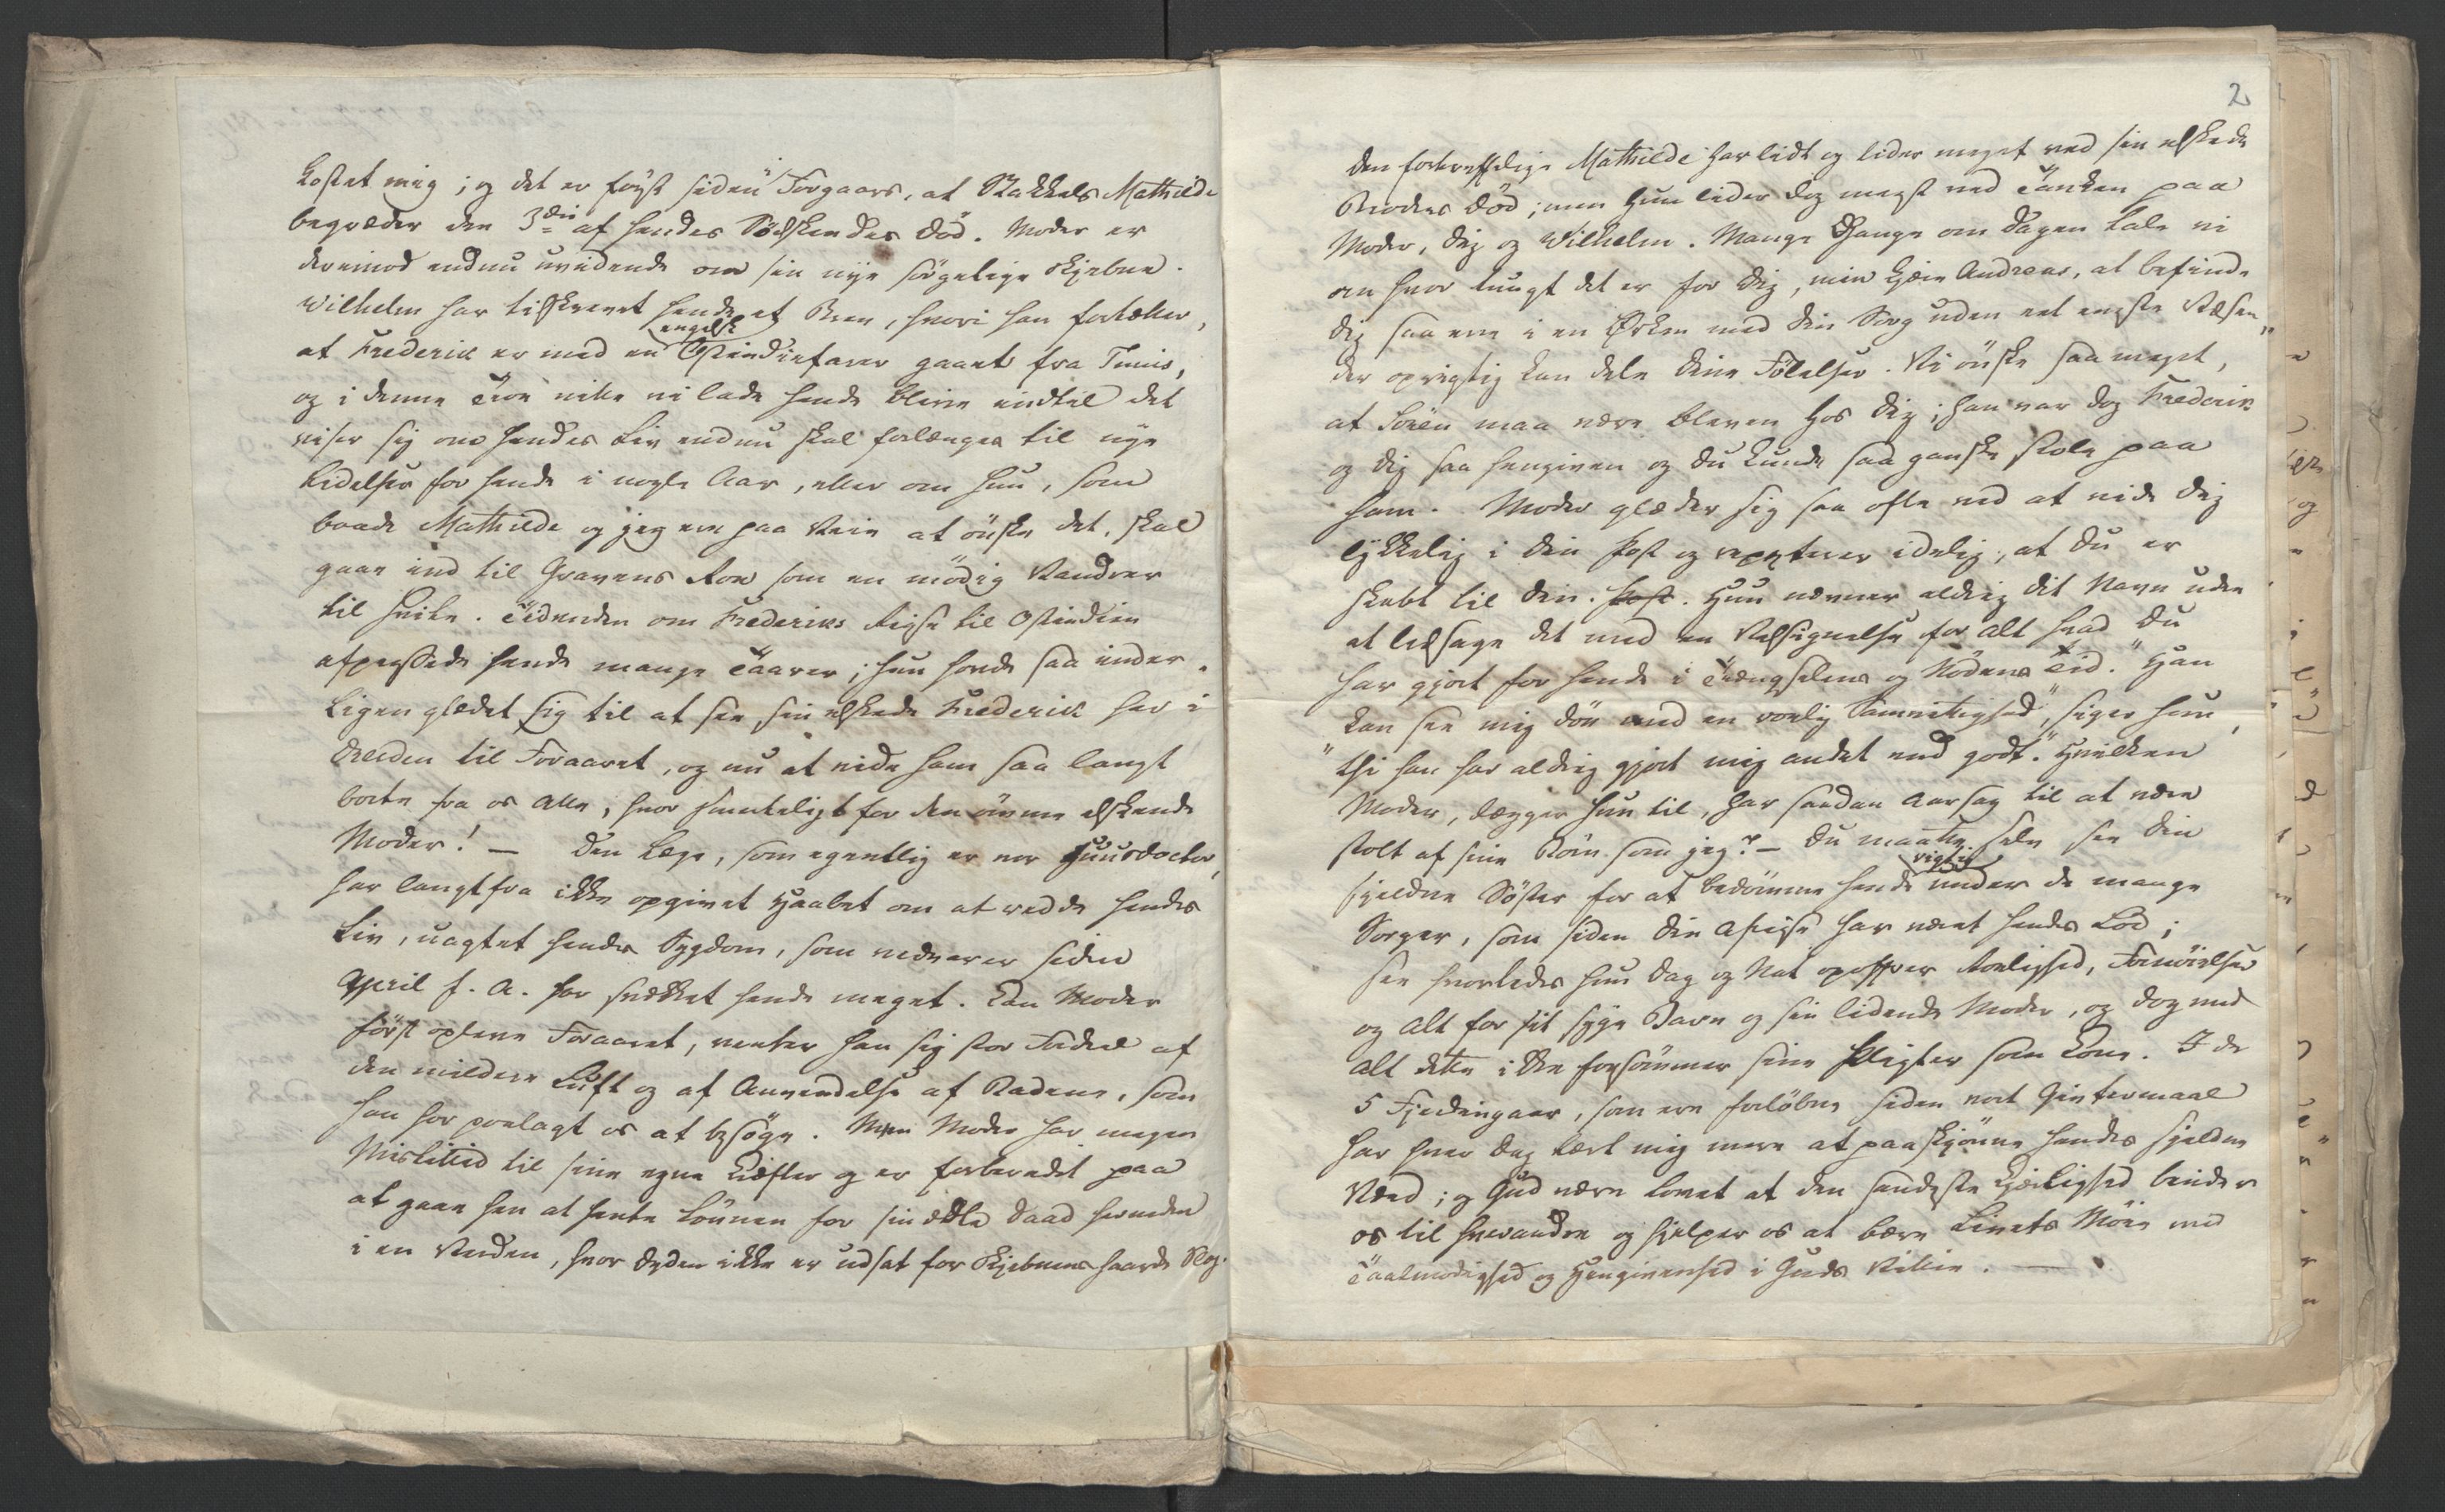 kostet mig; og det er først siden Forgaars, at Stakkels Mathilde
begræder den 3die af hendes Södskendes Död. Moder er
derimod endnu uvidende om sin nye sörgelige Skjebne.
Wilhelm har tilskrevet hende et Brev, hvori han fortæller,
at Frederik er med en engelsk Ostindiefarer gaaet fra Tunis,
og i denne Troe ville vi lade hende blive indtil det
viser sig om hendes Liv endnu skal forlænges til nye
Lidelser for hende i nogle Aar, eller om hun, som
baade Mathilde og jeg ere paa Veie at önske det, skal
gaae ind til Gravens Roe som en mödig Vandrer
til Hvile. Tidenden om Frederiks Reise til Ostindien
afpressede hende mange Taarer; hun havde saa inder-
ligen glædet sig til at see sin elskede Frederik her i
Dresden til Foraaret, og nu at vide ham saa langt
borte fra os Alle, hvor smerteligt for den ömme elskende
Moder! — Den Læge, som egentlig er vor Huusdoctor,
har langtfra ikke opgivet Haabet om at redde hendes
Liv, uagtet hendes Sygdom, som vedvarer siden
April f. A. har svækket hende meget. Kan Moder
först opleve Foraaret, venter han sig stor Fordeel af
den mildere Luft og af Anvendelse af Badene, som
han har paalagt os at besöge. Men Moder har megen
Mistillid til sine egne Kræfter og er forberedt paa
at gaae hen at hente Lönnen for sin ædle Daad herneden
i en Verden, hvor Dyden ikke er udsat for Skjebnens haarde Slag.
2
Den fortreffelige Mathilde har lidt og lider meget ved sin elskede
Broders Död; men hun lider dog megst ved Tanken paa
Moder, Dig og Wilhelm. Mange Gange om Dagen tale vi
om hvor tungt det er for Dig, min kjære Andreas, at befinde
Dig saa ene i en Örken med Din Sorg uden eet eneste Væsen,
der oprigtig kan dele Dine Fölelser. Vi önske saa meget,
at Sören maa være bleven hos Dig; han var dog Frederik
og Dig saa hengiven og Du kunde saa ganske stole paa
ham. Moder glæder sig saa ofte ved at vide Dig
lykkelig i Din Post og repeterer idelig, at Du er
skabt til den. Post. Hun nævner aldrig Dit Navn uden
at ledsage det med en Velsignelse for alt hvad Du
har gjort for hende i Trængselens og Nödens Tid. "Han
kan see mig döe med en rolig Samvittighed", siger hun,
"thi han har aldrig gjort mig andet end godt." Hvilken
Moder, lægger hun til, har saadan Aarsag til at være
stolt af sine Börn som jeg? — Du maatte selv see Din
sjeldne Söster for at bedömme hende rigtig under de mange
Sorger, som siden Din Afreise har været hendes Lod;
see hvorledes hun Dag og Nat opoffrer Rolighed, Fornöielser
og Alt for sit syge Barn og sin lidende Moder, og dog med
alt dette ikke forsömmer sine Pligter som Kone. I de
5 Fjerdingaar, som ere forlöbne siden vort Giftermaal
har hver Dag lært mig mere at paaskjönne hendes sjeldne
Værd; og Gud være lovet at den sandeste Kjærlighed binder
os til hverandre og hjelper os at bære Livets Möie med
Taalmodighed og Hengivenhed i Guds Villie. —